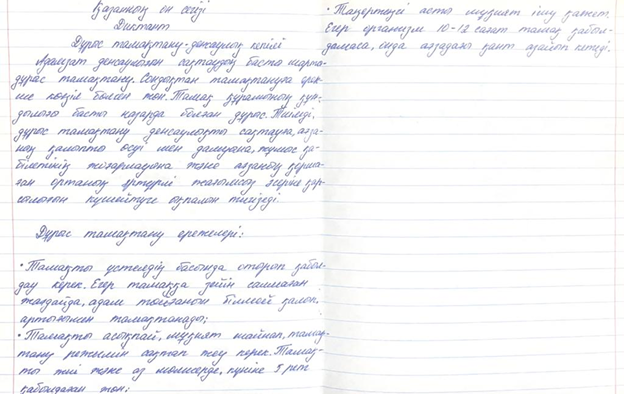 Қазанның он сегізі
Диктант
Дұрыс тамақтану-денсаулық кепілі
Адамзат денсаулығын сақтаудың басты шарты-
дұрыс тамақтану. Сондықтан тамақтануға ерек-
ше көңіл бөлген жөн. Тамақ құрамының құн-
дылығы басты назарда болған дұрыс. Тиімді,
дұрыс тамақтану денсаулықты сақтауға, аза-
ның қалыпты өсуі мен дамуына, жұмыс қа-
білетінің жоғарылауына және ағзаның қорша-
ған ортаның әртүрлі жағымсыз әсеріне қар-
сылығын күшейтуге ықпалын тигізеді.
Дұрыс тамақтану ережелері:
• Тамақты үстелдің басында отырып қабыл-
дау керек. Егер тамаққа зейін салмаған
жағдайда, адам тойғанын білмей қалып,
артығымен тамақтанады;
• Тамақты асықпай, мұқият шайнап, тамақ-
тану ретімен сақтап жеу керек. Тамақ-
ты жиі және аз мөлшерде, күніне 5 рет
қабылдаған жөн;
• Таңертеңгі асты мұқият ішу қажет.
Егер организм 10-12 сағат тамақ қабыл-
дамаса, онда ағзадағы қант азайып кетеді.